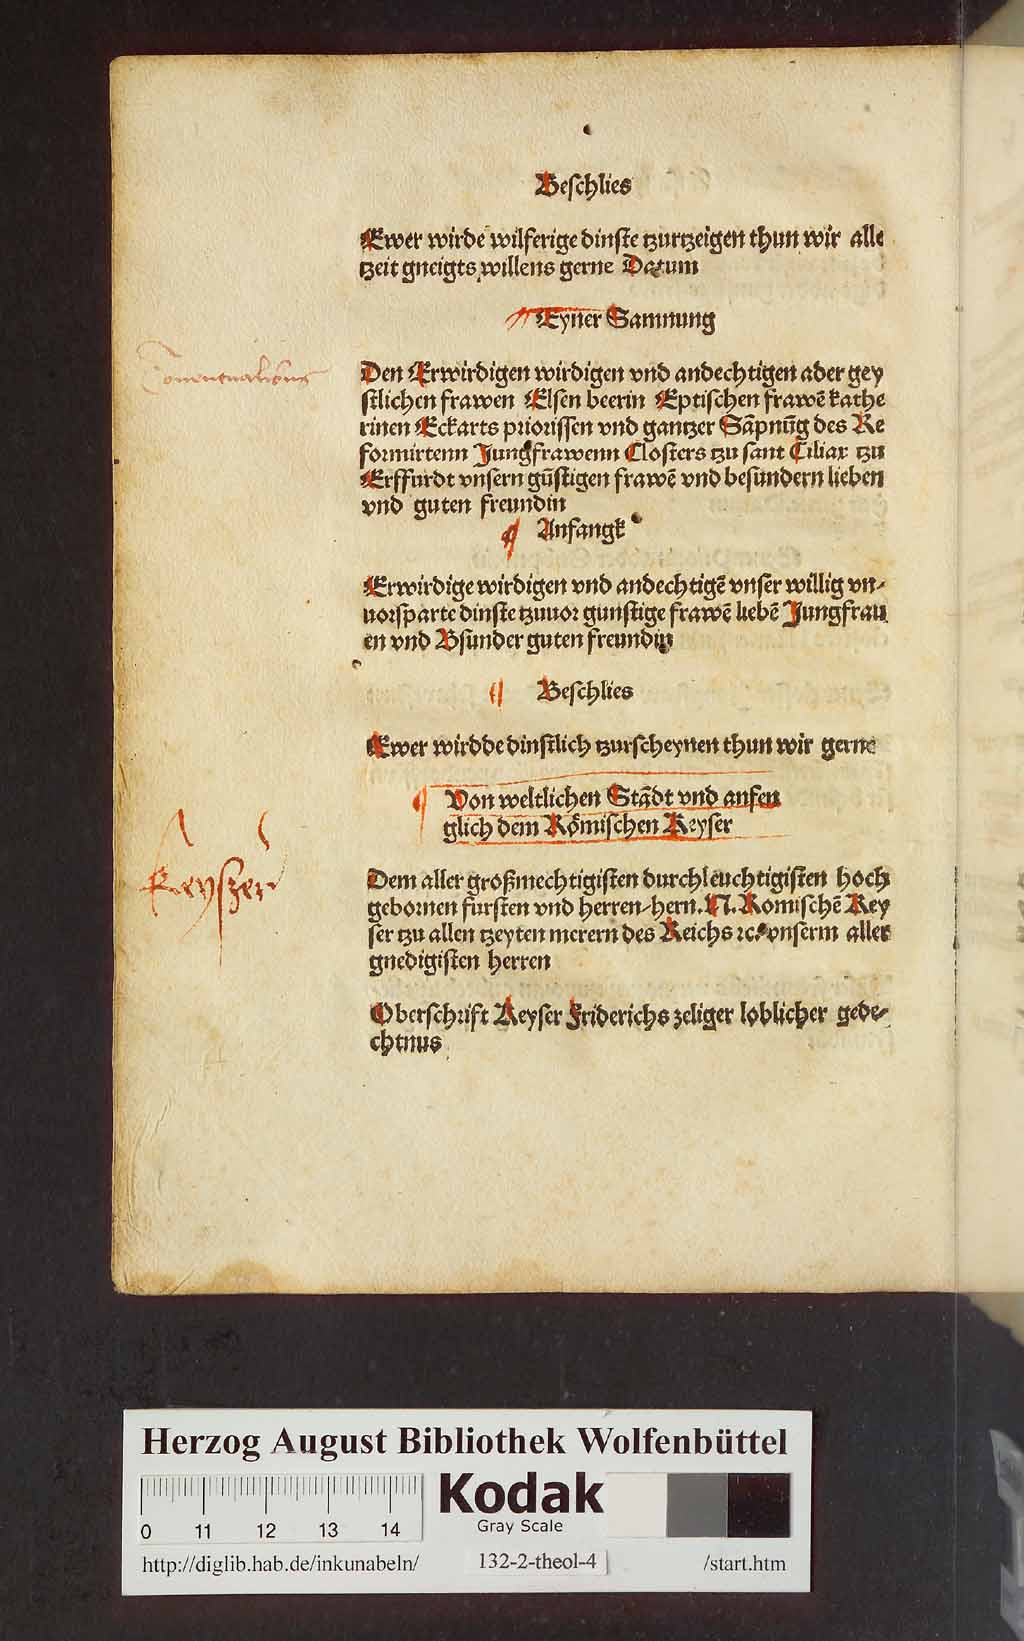 Beschlies
Ewer wirde wilferige dinste tzurtzeigen thun wir alle
tzeit gneigts willens gerne Datum
Eyner Samnung
Conuentualibus
Den Erwirdigen wirdigen vnd andechtigen ader gey
stlichen frawen Elsen beerin Eptischen frawē kathe
rinen Eckarts priorissen vnd gantzer Sāpnūg des Re
formirtenn Jungfrawenn Closters tzu sant Ciliax tzu
Erffurdt vnsern gūstigen frawē vnd besundern lieben
vnd guten freundin
¶ Anfangk
Erwirdige wirdigen vnd andechtigē vnser willig vn-
uorsparte dinste tzuuor gunstige frawē liebē Jungfrau
en vnd Bsunder guten freundin
¶ Beschlies
Ewer wirdde dinstlich tzurscheynen thun wir gerne
¶ Von weltlichen Stādt vnd anfen
glich dem Rőmischen Keyser
Keyszer
Dem aller großmechtigisten durchleuchtigisten hoch
gebornen fursten vnd herren hern .N. Romischē Key
ser tzu allen tzeyten merern des Reichs ꝛc. vnserm aller
gnedigisten herren
Oberschrift Keyser Friderichs zeliger loblicher gede-
chtnus
Herzog August Bibliothek Wolfenbüttel
Kodak
Gray Scale
0 11 12 13 14
http://diglib.hab.de/inkunabeln/ 132-2-theol-4 /start.htm